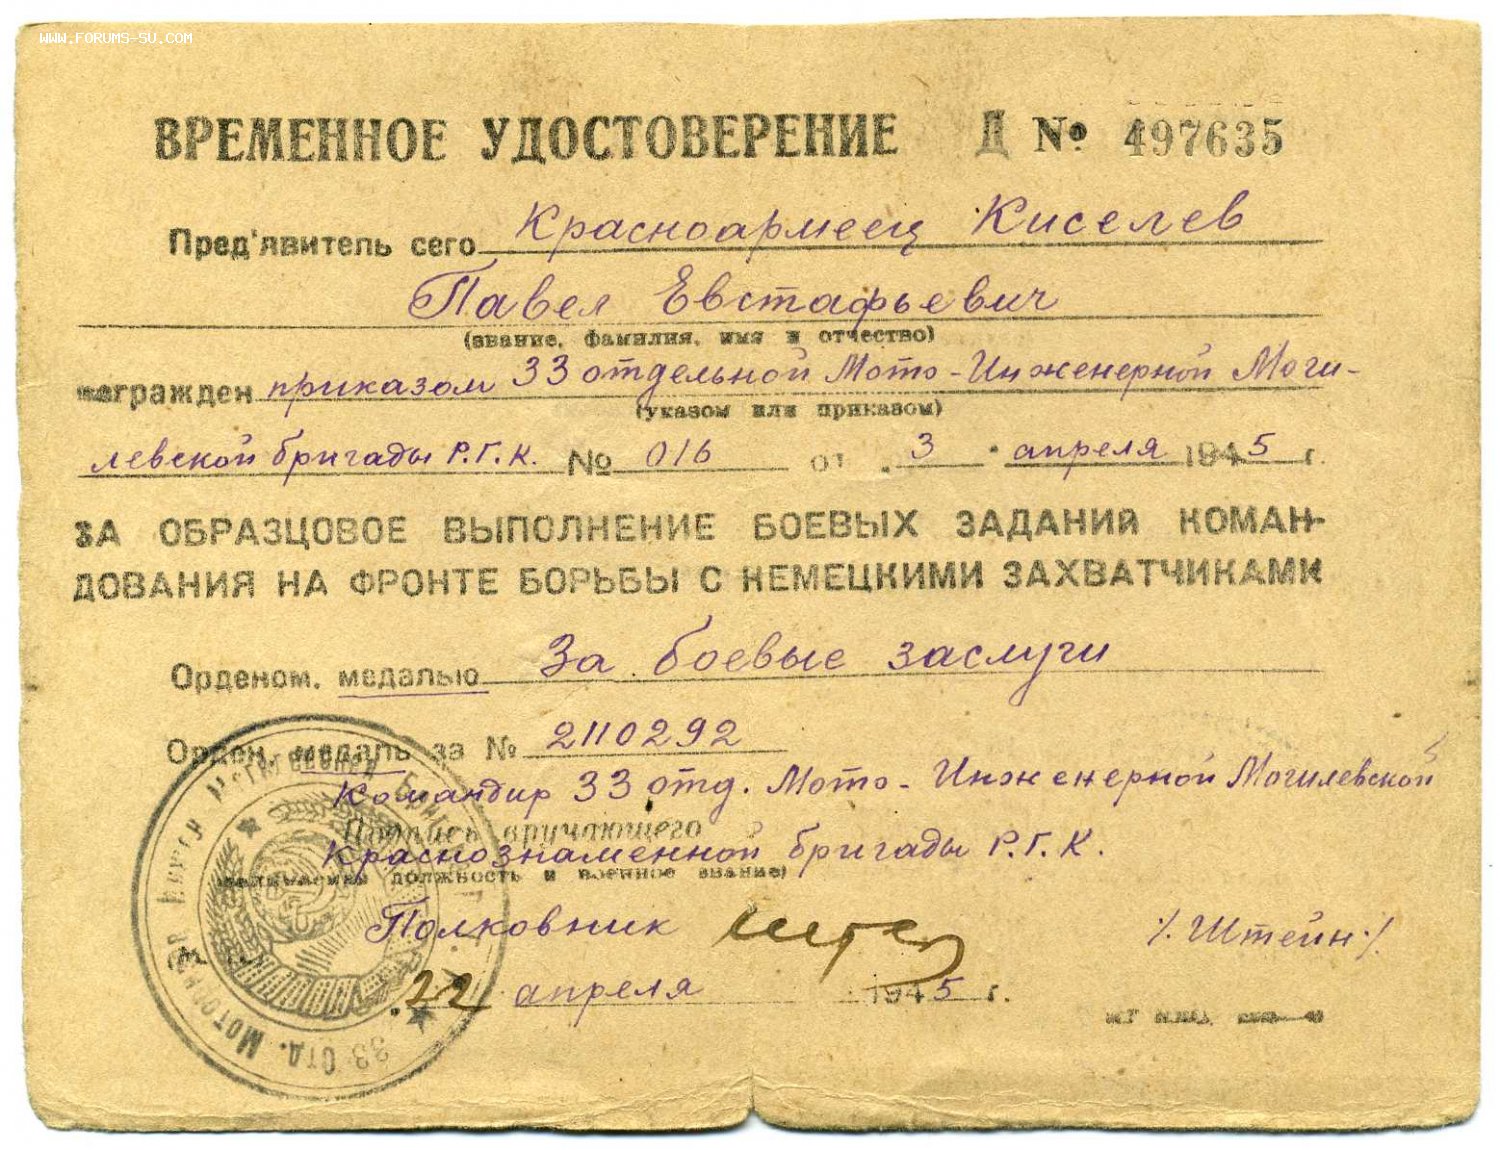 WWW.FORUMS-SU.COM
ВРЕМЕННОЕ УДОСТОВЕРЕНИЕ Д № 497635
Пред'явитель сего Красноармеец Киселев
Павел Евстафьевич
(звание, фамилия, имя и отчество)
награжден приказом 33 отдельной Мото-Инженерной Моги-
(указом или приказом)
левской бригады Р.Г.К. № 016 от 3 апреля 1945 г.
ЗА ОБРАЗЦОВОЕ ВЫПОЛНЕНИЕ БОЕВЫХ ЗАДАНИЙ КОМАН-
ДОВАНИЯ НА ФРОНТЕ БОРЬБЫ С НЕМЕЦКИМИ ЗАХВАТЧИКАМИ
Орденом, медалью За боевые заслуги
Орден, медаль за № 2110292
Командир 33 отд. Мото-Инженерной Могилевской
Подпись вручающего
Краснознаменной бригады Р.Г.К.
должность и военное звание)
Полковник /Штейн/
22 апреля 1945 г.
33 Отд. Моторизов